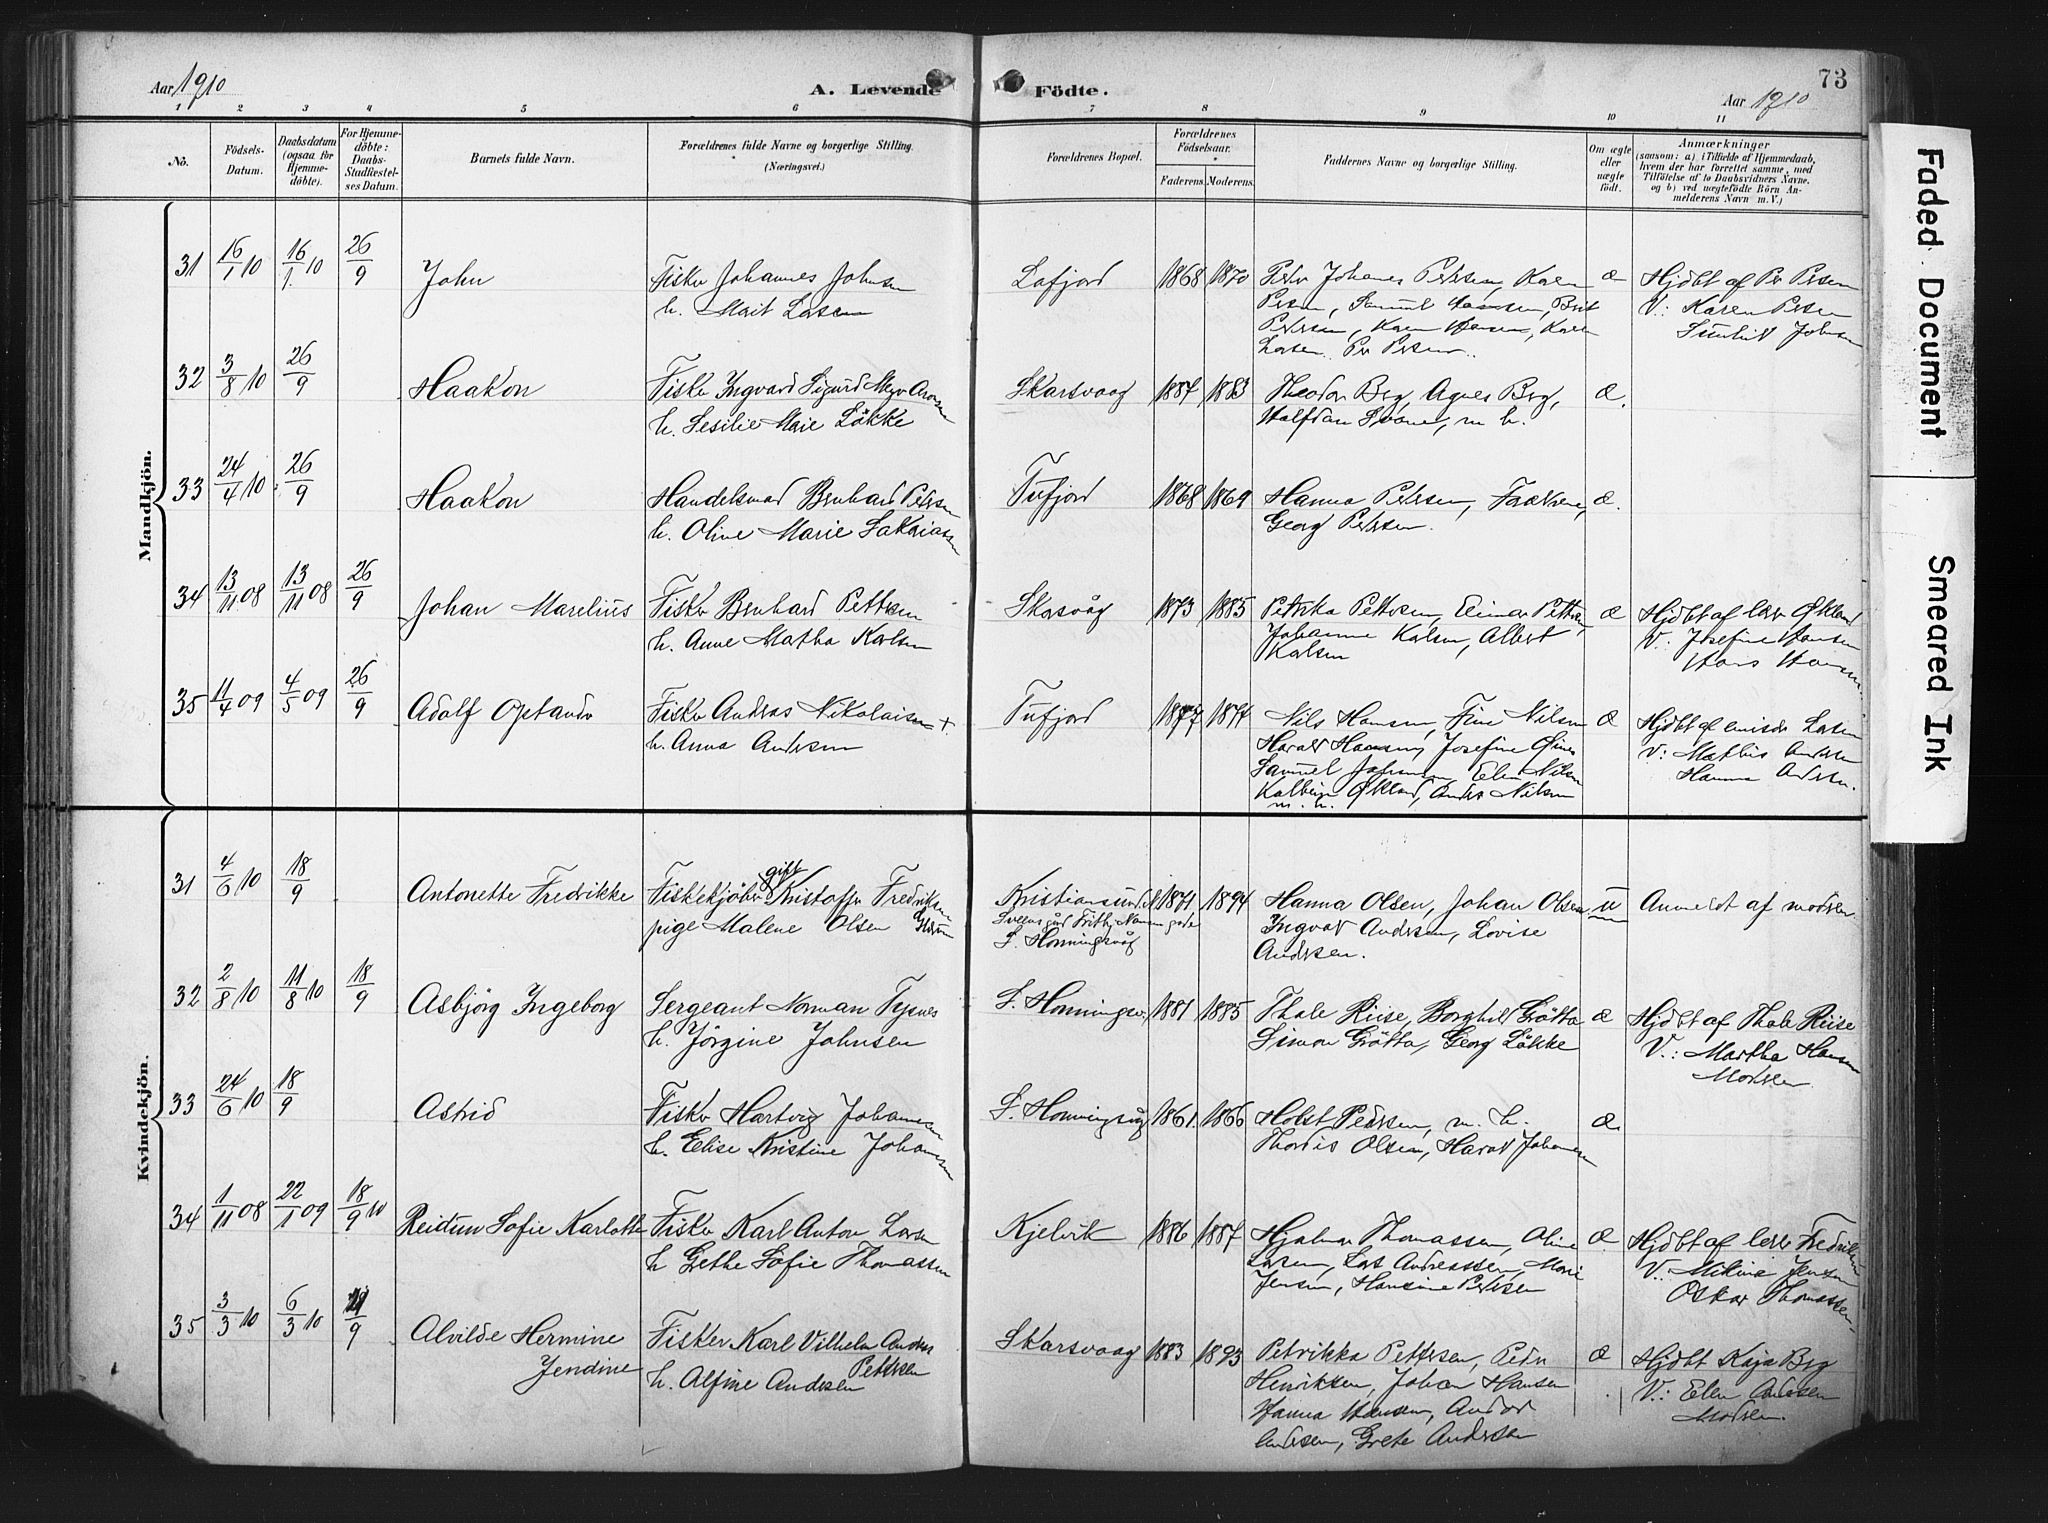 Aar 1910
A. Levende
Födte.
73
Aar 1910
1 2 3 4 5 6 7 8 9 10 11
No.
Födsels-
Datum.
Daabsdatum
(ogsaa for
Hjemme-
döbte).
For Hjemme-
döbte:
Daabs-
Stadfæstel-
ses Datum.
Barnets fulde Navn.
Forældrenes fulde Navne og borgerlige Stilling.
(Næringsvei.)
Forældrenes Bopæl.
Forældrenes
Födselsaar.
Faderens. Moderens.
Faddernes Navne og borgerlige Stilling.
Om ægte
eller
uægte
födt.
Anmærkninger
(saasom: a) i Tilfælde af Hjemmedaab,
hvem der har forrettet samme, med
Tilföielse af to Daabsvidners Navne.
og b) ved uægtefödte Börn An-
melderens Navn m. V.)
Mandkjön.
31 16/1 10 16/1 10 26/9 John Fisker Johannes Johnsen
h. Marit Larsen
Lafjord 1868 1870 Peder Johannes Pedersen, Karen
Persen, Samuel Hansen, Berit
Pedersen, Karen Hansen, Karen
Larsen Per Persen. æ
Hjdbt af Per Persen
V: Karen Persen
Johnsen
32 3/8 10 26/9 Haakon Fisker Ingvard Sigurd Meyer
h. Sesilie Marie Løkke
Skarsvaag 1887 1883 Theodor Berg, Agnes Berg,
Halfdan Svane, m h. æ.
33 24/4 10 26/9 Haakon Handelsmand Bernhard Petersen
h. Oline Marie Sakariassen
Tufjord 1868 1869 Hanna Petersen, Forældrene,
Georg Petersen. æ.
34 13/11 08 13/11 08 26/9 Johan Marelius Fisker Bernhard Pettersen
h. Anne Martha Karlsen
Skarsvåg 1873 1885 Petrikka Pettersen, Einar Pettersen,
Johanne Karlsen, Albert
Karlsen æ
Hjdbt af lærer Økland
V: Josefine Hansen
Hans Hansen.
35 11/4 09 4/5 09 26/9 Adolf Optandr Fisker Andreas Nikolaisen +
h. Anna Andersen
Tufjord 1877 1874 Nils Hansen, Fine Nilsen
Harald Hansen, Josefine
Samuel Johnsen Elen Nilsen
Økland, Anders Nilsen
m. h. æ
Hjdbt af emisær Larsen
V: Mathis Andersen
Hanna Andersen.
Kvindekjön.
31 4/6 10 18/9 Antonette Fredrikke Fiskekjøber gift Kristoffer Fredriksen
pige Malene Olsen
Kristiansund N
S. Honningsvåg 1871 1894 Hanna Olsen, Johan Olsen
Ingvar Andersen, Lovise
Andersen. u
Anmeldt af moderen
32 2/8 10 11/8 10 18/9 Asbjörg Ingeborg Sergeant Norman Tysnes
h. Jörgine Johnsen
S. Honningsv. 1881 1885 Thale Riise, Borghild Grötta
Simon Grötta, Georg Løkke æ
Hjdbt af Thale Riise
V.: Martha Hansen
Moderen
33 24/6 10 18/9 Astrid Fisker Hartvig Johansen
h. Elise Kristine Johansen
S. Honningsvåg 1861. 1866 Holst Pedersen, m. h.
Thordis Olsen, Harald Johansen æ.
34 1/11 08 22/1 09 18/9 10 Reidun Sofie Karlotte Fisker Karl Anton Larsen
h Grethe Sofie Thomassen
Kjelvik 1886 1887 Hjalmar Thomassen, Oline
Larsen, Lars Andreassen, Marie
Jensen, Hansine Pedersen æ.
Hjdbt af lærer Fredriksen
V: Mikine Jensen
Oskar Thomassen.
35 3/3 10 6/3 10 /9 Alvilde Hermine
Jendine
Fisker Karl Vilhelm Anders
Pettersen
h. Alfine Andersen
Skarsvaag 1883 1893 Petrikka Pettersen, Peder
Henriksen, Johan Hansen
Hanna Hansen, Andor
Andersen, Grete Andersen æ
Hjdbt Kaja Berg
V.: Elen Andersen
Moderen.
Faded Document
Smeared Ink